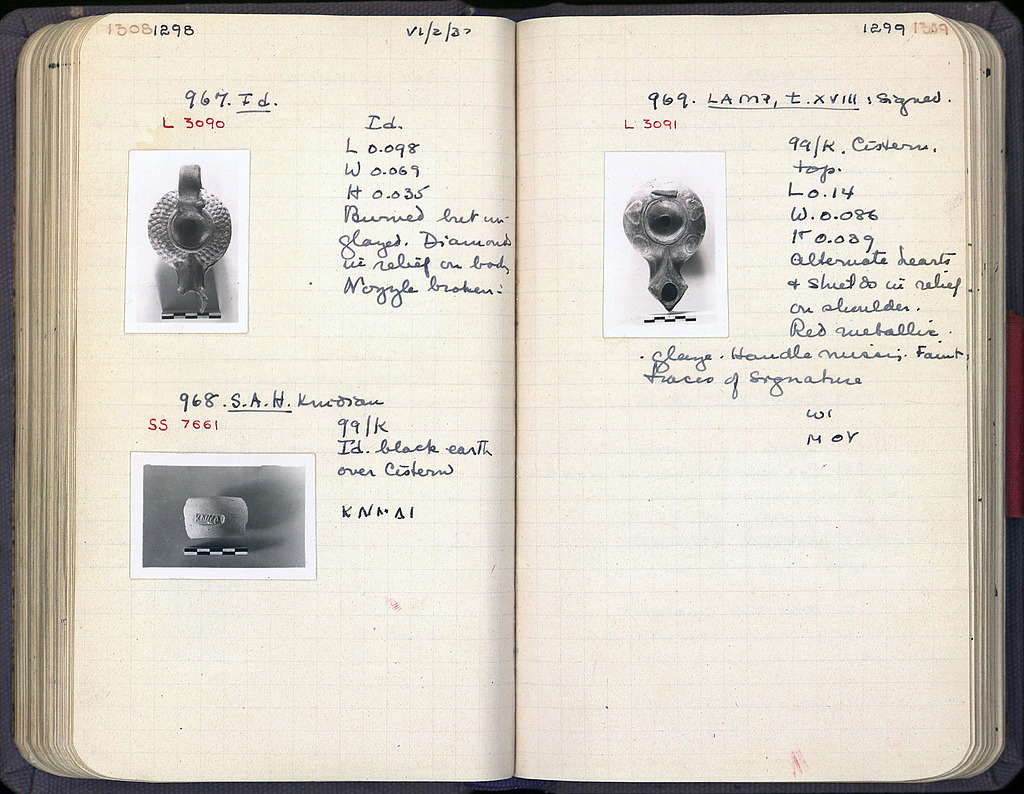 1308 1298
VI/2/37
967. Id.
L 3090
Id.
L 0.098
W 0.069
H 0.035
Burned but un-
glazed. Diamonds
in relief on body
Nozzle broken.
968. S.A.H. Knidian
SS 7661
99/K
Id. black earth
over Cistern
KNIΔI
1299 1309
969. LAMP, t. XVIII : Signed.
L 3091
99/K. Cistern,
top.
L 0.14
W. 0.086
H 0.039
Alternate hearts
& shields in relief
on shoulder.
Red metallic
glaze. Handle missing. Faint
traces of signature